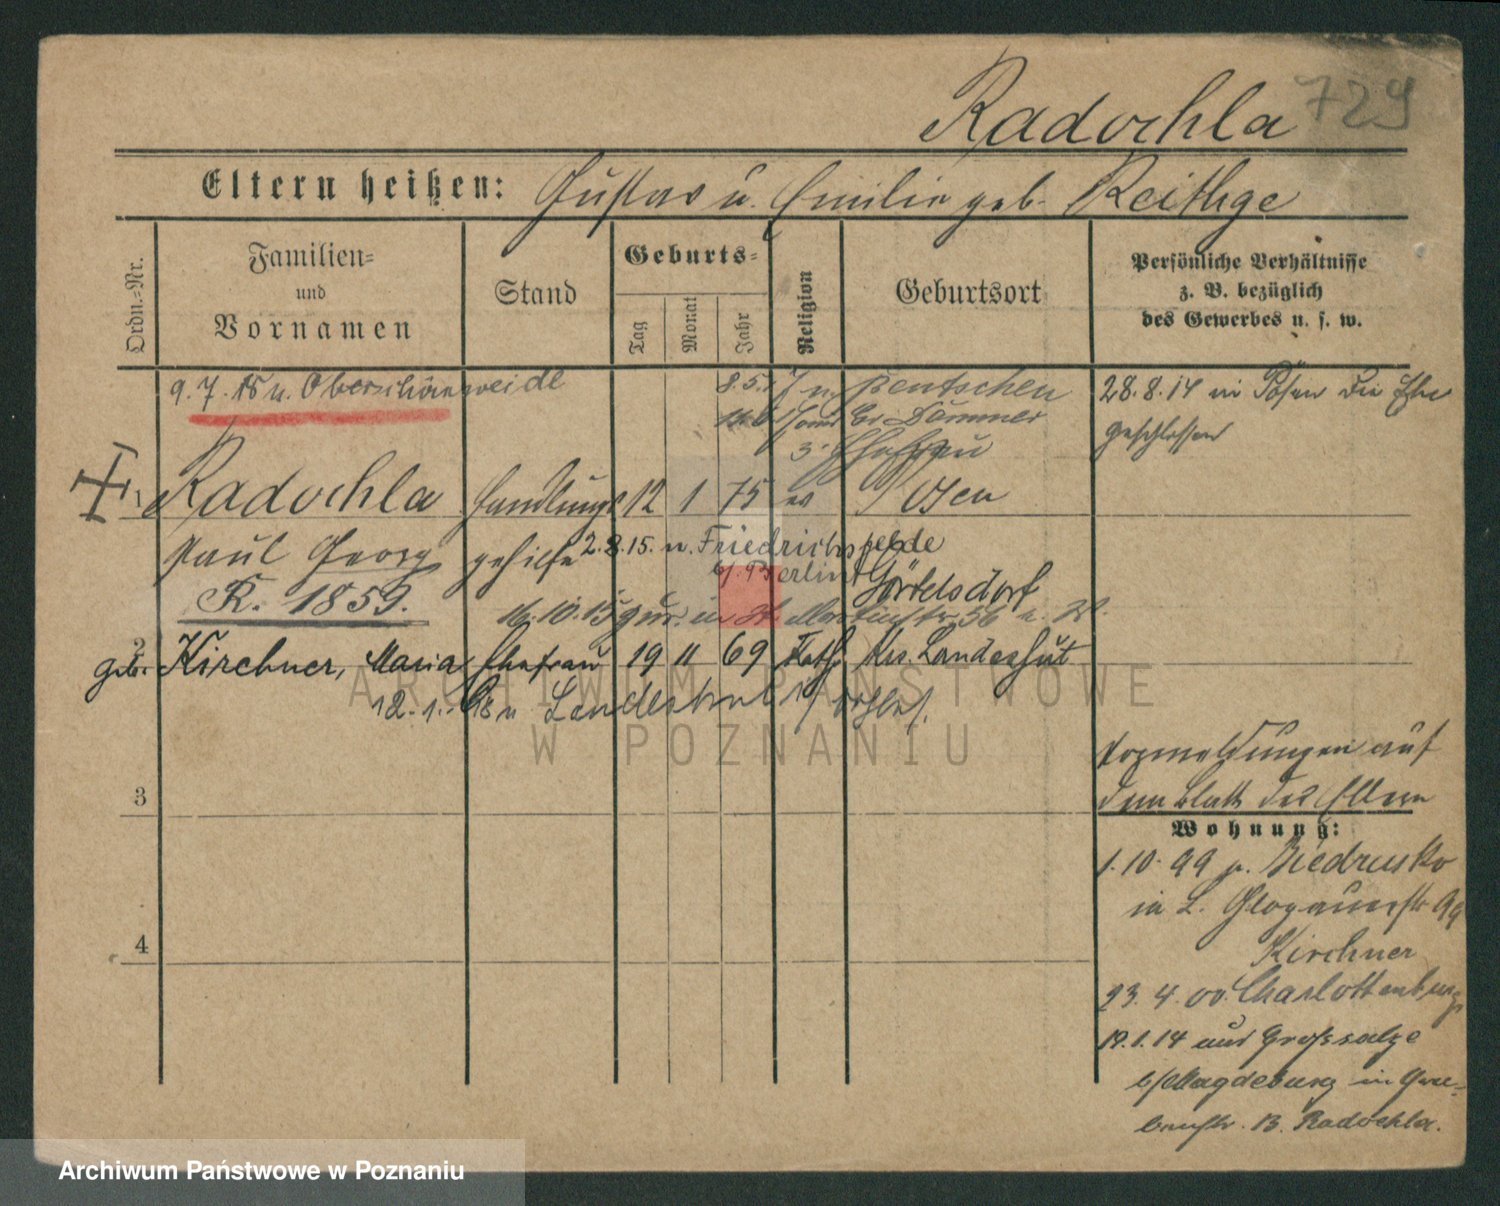 Radochla 729
Eltern heißen: Gustav u. Emilie geb. Reithge
Ordn.-Nr.
Familien-
und
Vornamen
Stand
Geburts-
Tag
Monat
Jahr
Religion
Geburtsort
Persönliche Verhältnisse
z. B. bezüglich
des Gewerbes u. s. w.
9. 7. 15 n. Oberschöneweide
8.5. n. Bentschen
Dammer
3. Ehefrau
28.8.14 in Posen die Ehe
geschlossen
1 Radochla Handlungs 12 1 75 ev Posen
Paul Georg gehilfe
2.8.15. n. Friedrichsfelde
b/. Berlin
R. 1859.
16.10.15 zur. in St. Martinstr. 56
Görtelsdorf
2 geb. Kirchner, Maria Ehefrau 19 11 69 kath. Krs. Landeshut
12.1. 18 n Landeshut i/
3
4
Vormeldungen auf
dem Blatt des Eltern
Wohnung:
1.10.99 v. Biedrusko
in L. Glogauerstr 99
Kirchner
23.4.00. Charlottenburg
19.1.14 aus Grosssalze
b/Magdeburg in Gra-
benstr. B. Radochla.
ARCHIWUM PAŃSTWOWE
W POZNANIU
Archiwum Państwowe w Poznaniu